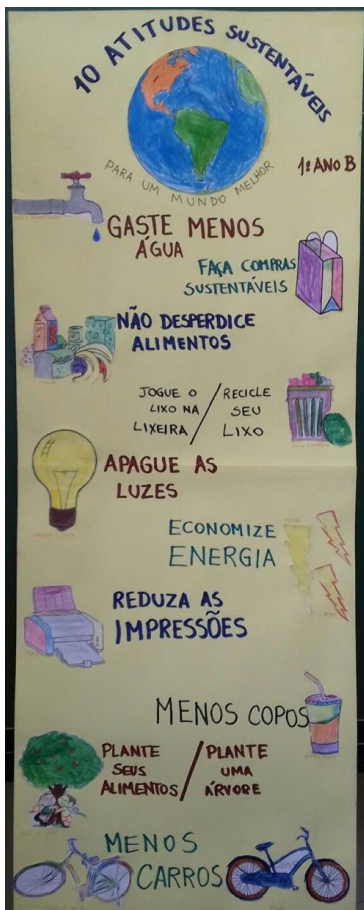 10 ATITUDES SUSTENTÁVEIS
PARA UM MUNDO MELHOR
1º ANO B
GASTE MENOS
ÁGUA
FAÇA COMPRAS
SUSTENTÁVEIS
NÃO DESPERDICE
ALIMENTOS
JOGUE O
LIXO NA
LIXEIRA /
RECICLE
SEU
LIXO
APAGUE AS
LUZES
ECONOMIZE
ENERGIA
REDUZA AS
IMPRESSÕES
MENOS COPOS
PLANTE
SEUS
ALIMENTOS /
PLANTE
UMA
ÁRVORE
MENOS
CARROS